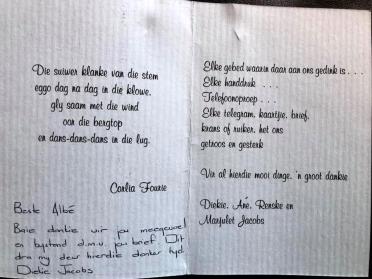 Die suiwer klanke van die stem
eggo dag na dag in die klowe.
gly saam met die wind
oor die bergtop
en dans-dans-dans in die lug.
Carlia Fourie
Beste Albé
Baie dankie vir jou meegevoel
en bystand d.m.v. jou brief. Dit
dra my deur hierdie donker tyd.
Diekie Jacobs
Elke gebed waarin daar aan ons gedink is . . .
Elke handdruk . . . .
Telefoonoproep . . .
Elke telegram, kaartjie, brief,
krans of ruiker, het ons
getroos en gesterk
Vir al hierdie mooi dinge, 'n groot dankie
Diekie, Ané, Renske en
Marjulet Jacobs